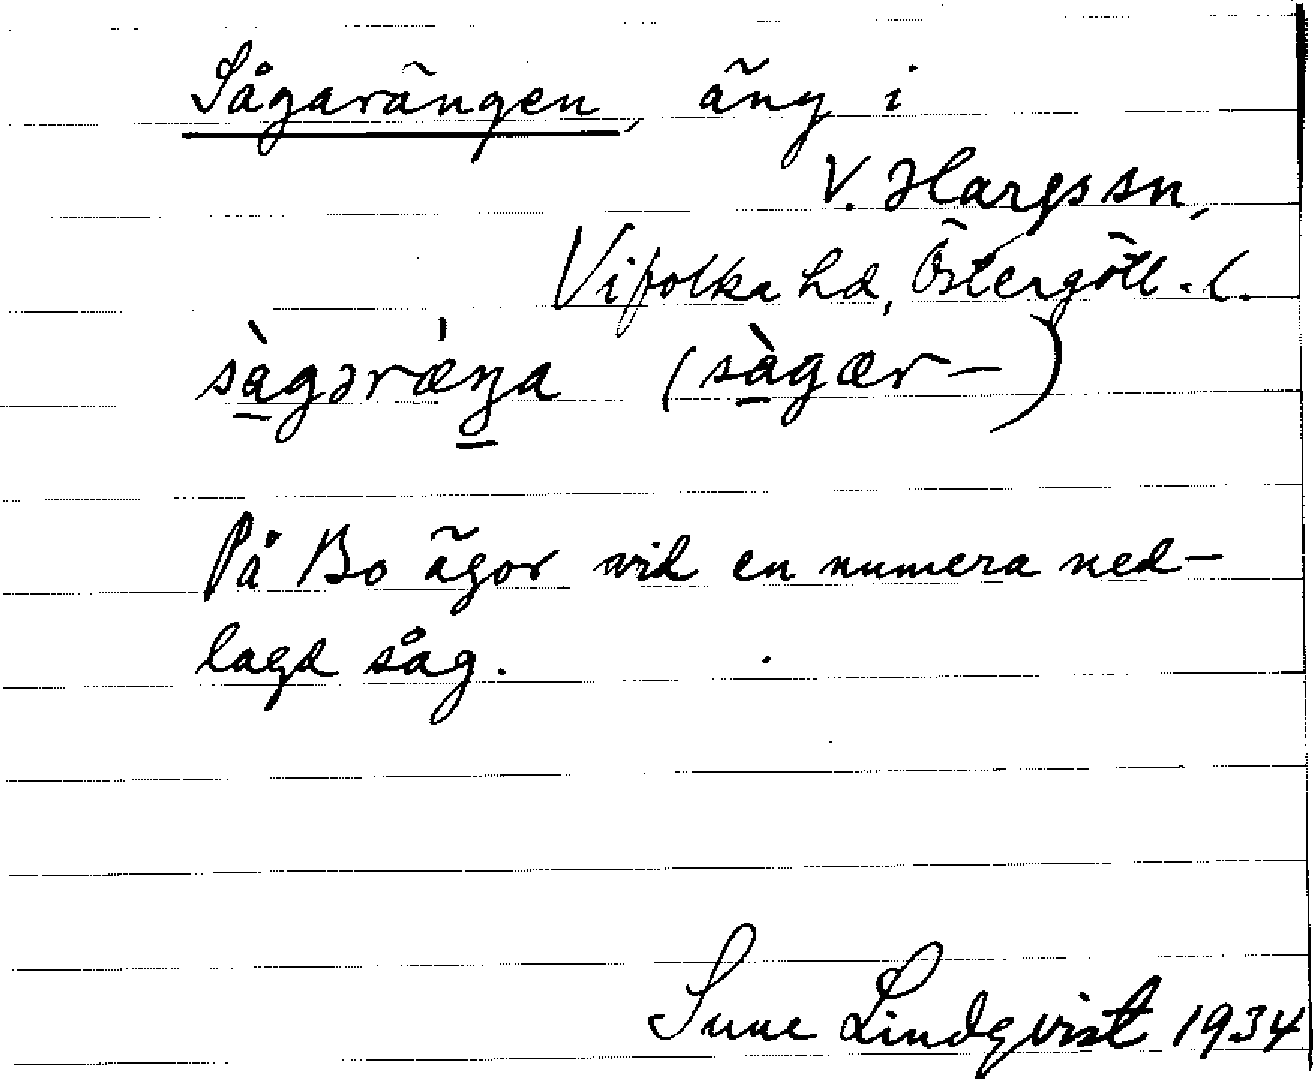 Sågarängen, äng i
V. Hargs sn,
Vifolka hd, Östergötl. l.
sàgərǽŋa (sàgær-)
På Bo ägor vid en numera ned-
lagd såg.
Sune Lindqvist 1934